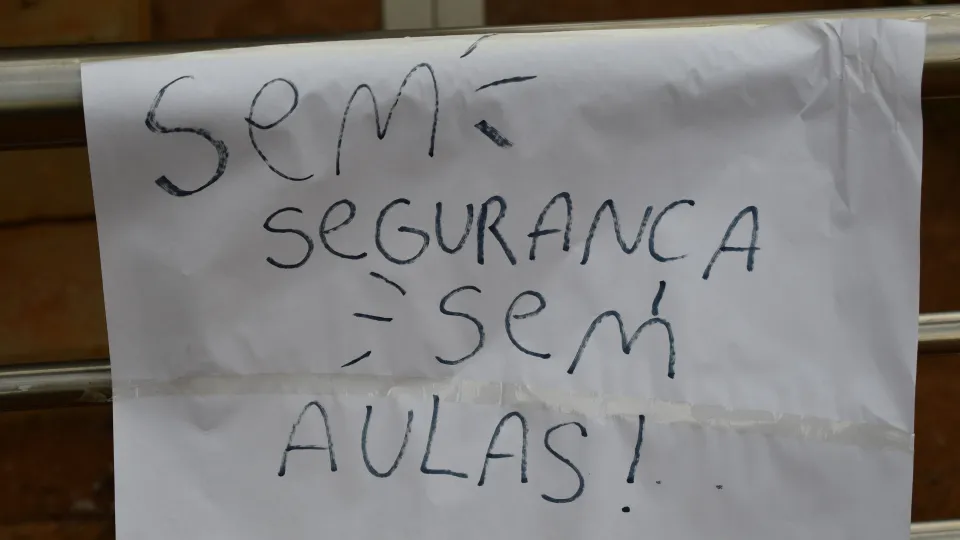 SeM
SeGURANCA
SeM
AULAS!..